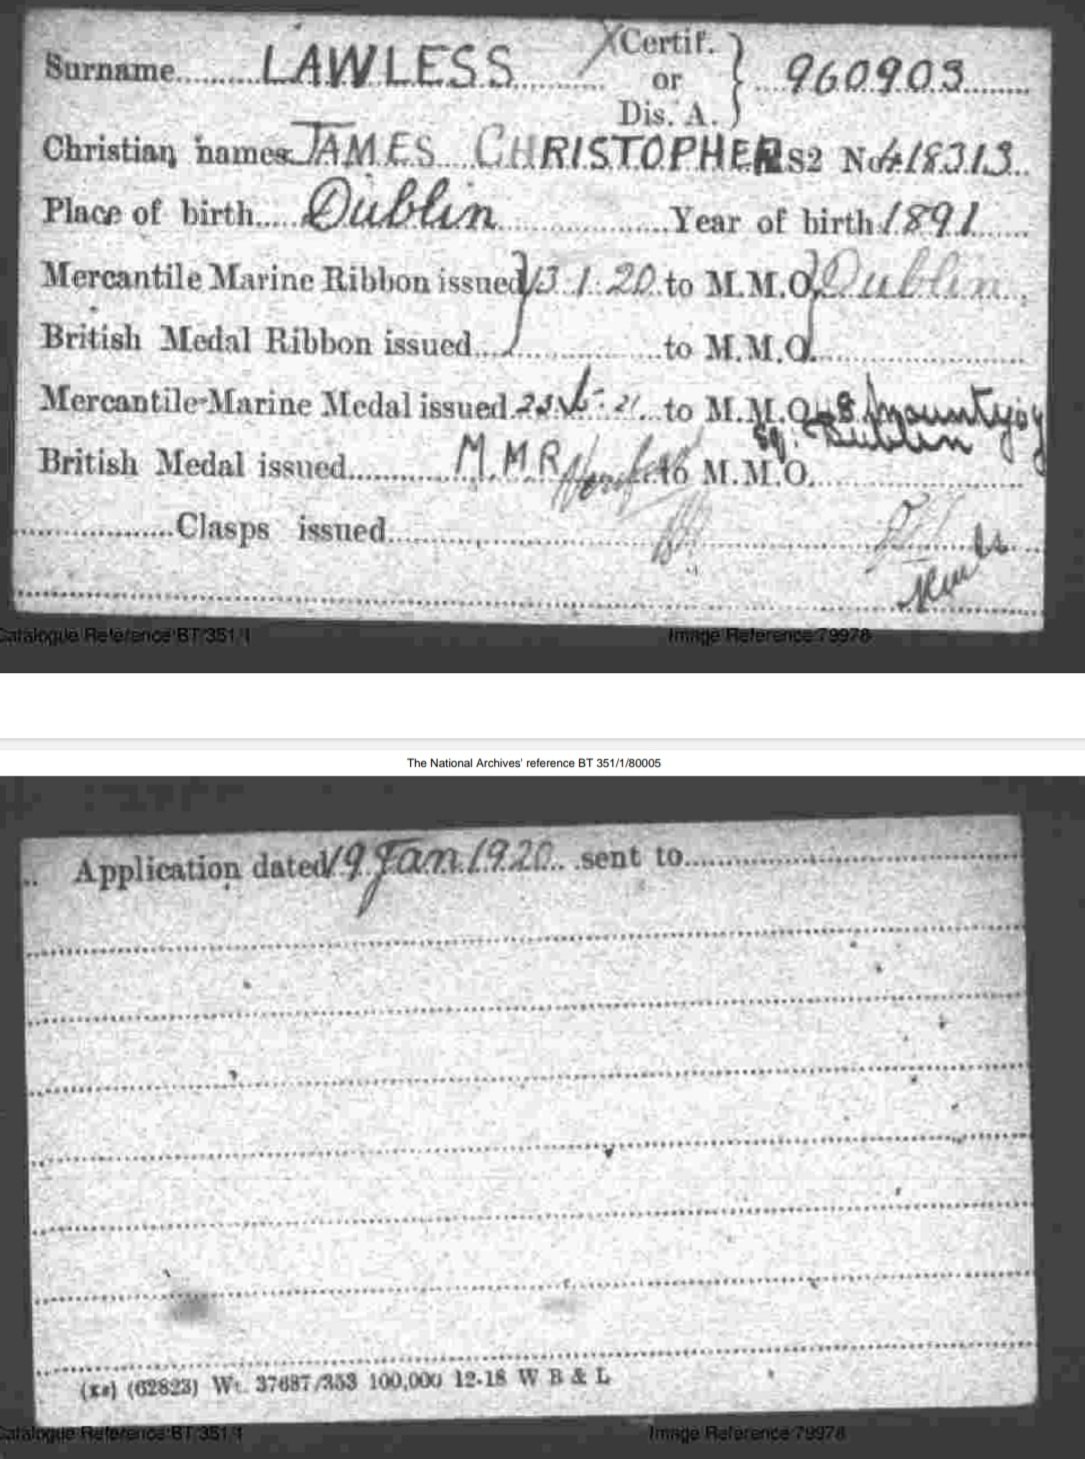 Surname LAWLESS X Certif. or Dis. A. } 960903
Christian names JAMES CHRISTOPHER S2 No 418313
Place of birth Dublin Year of birth 1891
Mercantile Marine Ribbon issued 13.1.20 to M.M.O. Dublin
British Medal Ribbon issued to M.M.O.
Mercantile-Marine Medal issued 21 to M.M.O. 48 Mountjoy
Sq. Dublin
British Medal issued M.M.R. to M.M.O.
Clasps issued
Catalogue Reference:BT/351/1 Image Reference:79978
The National Archives' reference BT 351/1/80005
Application dated 9 Jan 1920 sent to
(62823) Wt. 37687/353 100,000 12-18 W B & L
Catalogue Reference:BT/351/1 Image Reference:79978